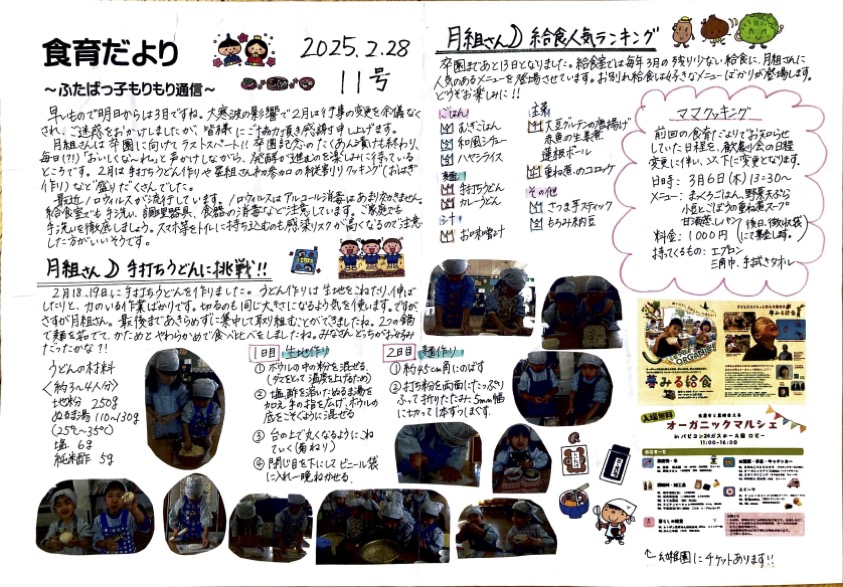 食育だより
～ふたばっ子もりもり通信～
2025.2.28
11号
早いもので明日からは3日ですね。大寒波の影響で2月は行事の変更を余儀なく
され、ご迷惑をおかけしましたが、皆様にご協力頂き感謝申し上げます。
月組さんは卒園に向けてラストスパート!! 卒園記念のたくあん漬けも終わり、
毎日(!?)"おいしくな～れ"と声かけしながら、発酵が進むのを楽しみに待っている
ところです。2月は手打ちうどん作りや星組さん初参加の縦割りクッキング(おはぎ
作り)など盛りだくさんでした。
最近ノロウィルスが流行しています。ノロウィルスはアルコール消毒はあまり効きません。
給食室でも手洗い、調理器具、食器の消毒など注意しています。ご家庭でも
手洗いを徹底しましょう。スマホ等をトイレに持ち込むのも感染リスクが高くなるので注意
した方がいいそうです。
月組さん 手打ちうどんに挑戦!!
2月18.19日に手打ちうどんを作りました。うどん作りは生地をこねたり、伸ば
したりと、力のいる作業ばかりです。切るのも同じ大きさになるよう気を使います。ですが、
さすが月組さん。最後まであきらめずに集中して取り組むことができましたね。2つの鍋
で麺を茹でて、かためとやわらかめで食べ比べをしましたね。みなさんどちらがお好み
だったかな?!
うどんの材料
<約3～4人分>
地粉 250g
ぬるま湯 110～130g
(25℃～35℃)
塩 6g
純米酢 5g
1日目 生地作り
① ボウルの中の粉を混ぜる。
② 塩、酢を溶いたぬるま湯を
加え、手の指を広げ、ボウルの
底をこそぐように混ぜる
③ 台の上で丸くなるようにこね
ていく(菊ねり)
④ 閉じ目を下にしてビニール袋
に入れ一晩ねかせる。
2日目 麺作り
① 約45cm角にのばす
② 打ち粉を両面にたっぷり
ふって折りたたみ、5mm幅
に切って1本ずつほぐす。
月組さん 給食人気ランキング
卒園まであと13日となりました。給食室では毎年3月の残り少ない給食に、月組さんに
人気のあるメニューを登場させています。お別れ給食は好きなメニューばかりが登場します。
どうぞお楽しみに!!
ごはん
むぎごはん
和風シチュー
ハヤシライス
麺
手打ちうどん
カレーうどん
汁
お味噌汁
主菜
大豆グルテンの唐揚げ
赤魚の生姜煮
蓮根ボール
重ね煮のコロッケ
その他
さつま芋スティック
もちみ納豆
ママクッキング
前回の食育だよりでお知らせ
していた日程を、歓送会の日程
変更に伴い、以下に変更となります。
日時: 3月6日(木)13:30～
メニュー: まっくろごはん、野菜天ぷら
小豆とごぼうの重ね煮スープ
甘酒蒸しパン
料金: 1000円 (後日、徴収袋
にて集金します。)
持ってくるもの: エプロン
三角巾、手拭きタオル
夢みる給食
入場無料
オーガニックマルシェ
in パピヨン24ガスホール前 ロビー
11:00-16:00
↑幼稚園にチケットあります!!